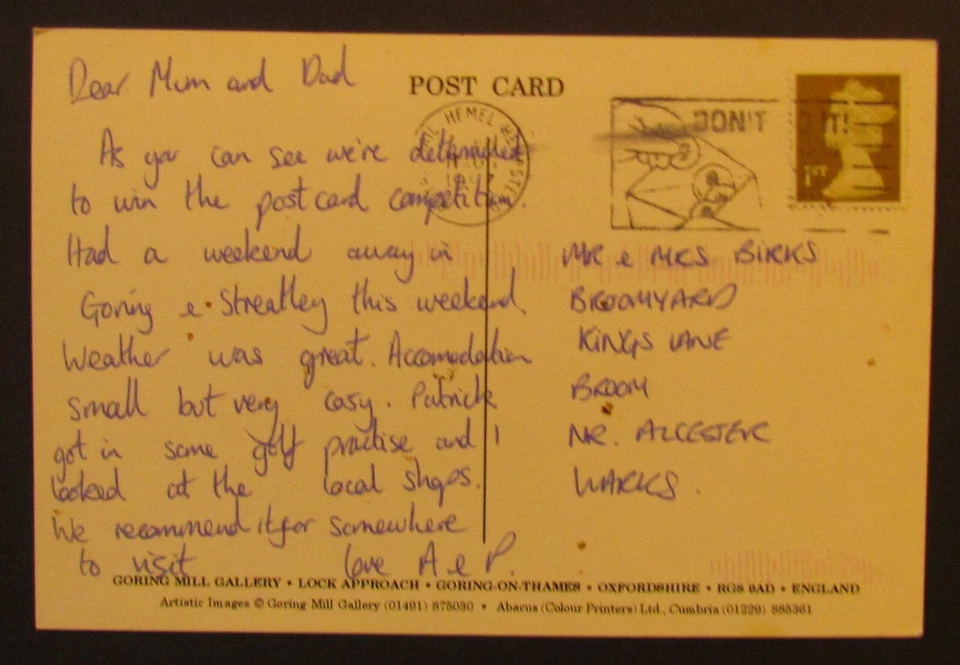 POST CARD
Dear Mum and Dad
As you can see we're determined
to win the postcard competition.
Had a weekend away in
Goring & Streatley this weekend.
Weather was great. Accomodation
small but very cosy. Patrick
got in some golf practise and I
looked at the local shops.
We recommend it for somewhere
to visit love A & P.
HEMEL HEMPSTE
DON'T IT!
1ST
MR & MRS BIRKS
BROOMYARD
KINGS LANE
BROOM
NR. ALCESTER
WARKS.
GORING MILL GALLERY • LOCK APPROACH • GORING-ON-THAMES • OXFORDSHIRE • RG8 9AD • ENGLAND
Artistic Images © Goring Mill Gallery (01491) 875030 • Abacus (Colour Printers) Ltd., Cumbria (01229) 885361